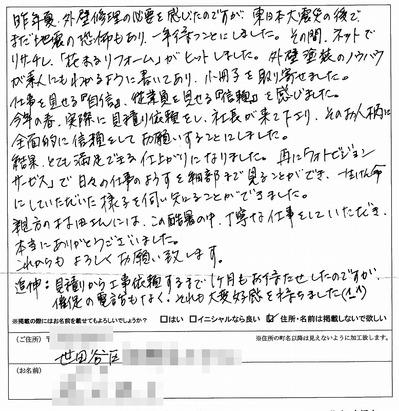 昨年夏、外壁修理の必要を感じたのですが、東日本大震災の後で、
まだ地震の恐怖もあり、一年待つことにしました。その間、ネットで
リサーチし、「花まるリフォーム」がヒットしました。外壁塗装のノウハウ
が素人にもわかるように書いてあり、小冊子を取り寄せました。
仕事を見せる『自信』、従業員を見せる『信頼』を感じました。
今年の春、実際に見積り依頼をし、社長が来て下さり、そのお人柄に
全面的に信頼をしてお願いすることにしました。
結果、とても満足できる仕上がりになりました。再に「フォトビジョン
サービス」で日々の仕事のようすを細部まで見ることができ、一生けん命
にしていただいた様子を伺い知ることができました。
親方の さんには、この酷暑の中、丁寧な仕事をしていただき、
本当にありがとうございました。
これからもよろしくお願い致します。
追伸：見積りから工事依頼するまで1ヶ月もお待たせしたのですが、
催促の電話もなく、それも大変好感を持ちました(^^)
※掲載の際にはお名前を載せてもよろしいでしょうか? □はい □イニシャルなら良い ☑住所・名前は掲載しないで欲しい
(ご住所) 〒 ※住所の町名以降は見えないように加工致します。
世田谷区
(お名前)